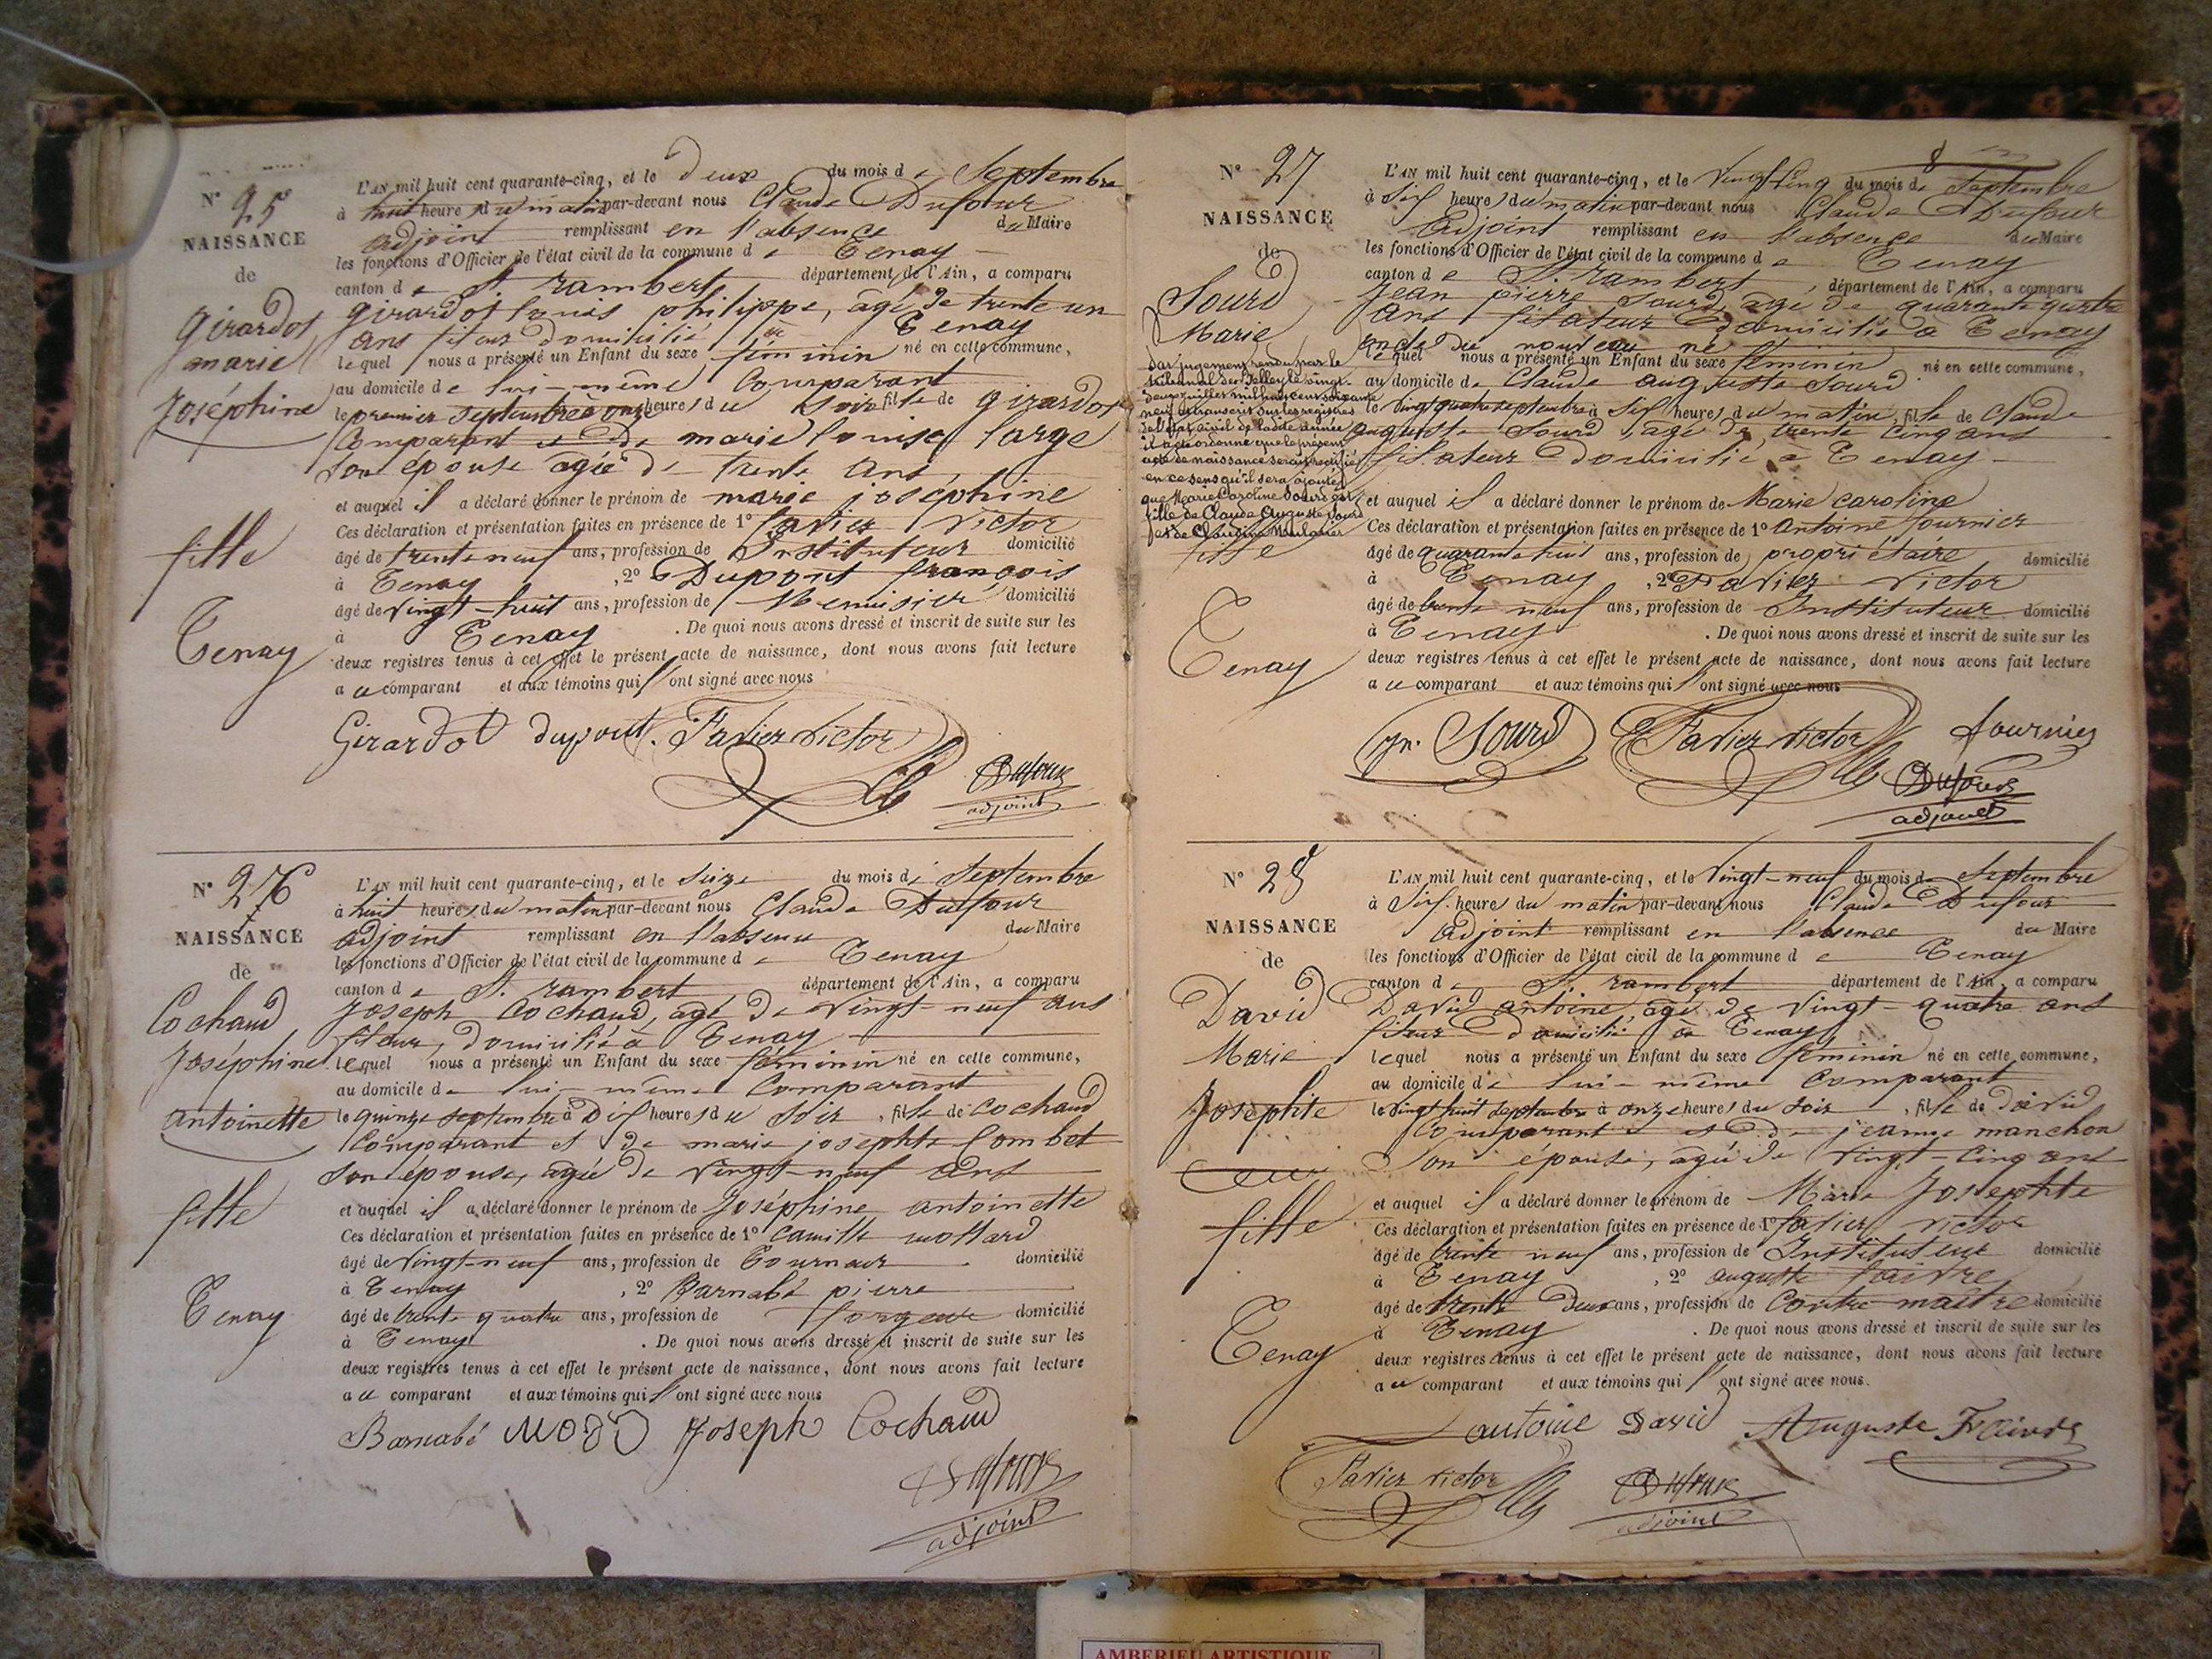 N° 25
NAISSANCE
de
Girardot
marie
Joséphine
fille
Tenay
L'AN mil huit cent quarante-cinq, et le deux du mois de Septembre
à huit heures du matin par-devant nous Claude Dufour
adjoint remplissant en l'absence du Maire
les fonctions d'Officier de l'état civil de la commune de Tenay
canton de St. rambert département de l'Ain, a comparu
girardot louis philippe, âgé de trente un
ans fileur domicilié à Tenay
lequel nous a présenté un Enfant du sexe féminin né en cette commune,
au domicile de lui-même Comparant
le premier Septembre à onze heures du soir fille de girardot
Comparant et de marie louise large
son épouse agée de trente ans
et auquel il a déclaré donner le prénom de marie joséphine
Ces déclaration et présentation faites en présence de 1° favier Victor
âgé de trente neuf ans, profession de Instituteur domicilié
à Tenay, 2° Dupont françois
âgé de vingt-huit ans, profession de Menuisier domicilié
à Tenay. De quoi nous avons dressé et inscrit de suite sur les
deux registres tenus à cet effet le présent acte de naissance, dont nous avons fait lecture
au comparant et aux témoins qui l'ont signé avec nous
Girardot dupont. Favier victor
Dufour
adjoint
N° 26
NAISSANCE
de
Cochaud
Joséphine
antoinette
fille
Tenay
L'AN mil huit cent quarante-cinq, et le Seize du mois de Septembre
à huit heures du matin par-devant nous Claude Dufour
adjoint remplissant en l'absence du Maire
les fonctions d'Officier de l'état civil de la commune de Tenay
canton de St. rambert département de l'Ain, a comparu
Joseph Cochaud, agé de vingt-neuf ans
fileur, domicilié à Tenay
lequel nous a présenté un Enfant du sexe féminin né en cette commune,
au domicile de lui-même Comparant
le quinze septembre à Dix heures du Soir, fille de Cochaud
Comparant et de marie josephte Combet
son épouse, agée de vingt-neuf ans
et auquel il a déclaré donner le prénom de Joséphine antoinette
Ces déclaration et présentation faites en présence de 1° Camille mottard
âgé de vingt-neuf ans, profession de Tourneur domicilié
à Tenay, 2° Barnabé pierre
âgé de trente quatre ans, profession de forgeur domicilié
à Tenay. De quoi nous avons dressé et inscrit de suite sur les
deux registres tenus à cet effet le présent acte de naissance, dont nous avons fait lecture
au comparant et aux témoins qui l'ont signé avec nous
Barnabé Joseph Cochaud
Dufour
adjoint
8
N° 27
NAISSANCE
de
Sourd
Marie
par jugement rendu par le
tribunal de Belley le vingt-
deux juillet mil huit cent soixante
neuf et transcrit sur les registres
de l'état civil de ladite année
il a été ordonné que le présent
acte de naissance serait rectifié
en ce sens qu'il sera ajouté
que Marie Caroline Sourd est
fille de Claude Auguste Sourd
et de Claudine
fille
Tenay
L'AN mil huit cent quarante-cinq, et le Vingt Cinq du mois de Septembre
à Six heures du matin par-devant nous Claude Dufour
Adjoint remplissant en l'absence du Maire
les fonctions d'Officier de l'état civil de la commune de Tenay
canton de St. rambert, département de l'Ain, a comparu
Jean pierre Sourd, agé de quarante quatre
ans filateur domicilié à Tenay
oncle du nouveau né
lequel nous a présenté un Enfant du sexe féminin né en cette commune,
au domicile de Claude auguste Sourd
le vingt quatre septembre à Six heures du matin, fille de Claude
auguste Sourd, agé de trente Cinq ans
filateur domicilié à Tenay
et auquel il a déclaré donner le prénom de Marie Caroline
Ces déclaration et présentation faites en présence de 1° antoine fournier
âgé de quarante huit ans, profession de propriétaire domicilié
à Tenay, 2° favier Victor
âgé de trente neuf ans, profession de Instituteur domicilié
à Tenay. De quoi nous avons dressé et inscrit de suite sur les
deux registres tenus à cet effet le présent acte de naissance, dont nous avons fait lecture
au comparant et aux témoins qui l'ont signé avec nous
Sourd Favier victor fournier
Dufour
adjoint
N° 28
NAISSANCE
de
David
Marie
Josephte
fille
Tenay
L'AN mil huit cent quarante-cinq, et le Vingt-neuf du mois de Septembre
à Six heures du matin par-devant nous Claude Dufour
Adjoint remplissant en l'absence du Maire
les fonctions d'Officier de l'état civil de la commune de Tenay
canton de St. rambert département de l'Ain, a comparu
David antoine, agé de Vingt-quatre ans
fileur domicilié à Tenay
lequel nous a présenté un Enfant du sexe féminin né en cette commune,
au domicile de lui-même Comparant
le vingt huit septembre à onze heures du soir, fille de David
Comparant et de jeanne manchon
Son épouse, agée de Vingt-Cinq ans
et auquel il a déclaré donner le prénom de Marie Josephte
Ces déclaration et présentation faites en présence de 1° favier Victor
âgé de trente neuf ans, profession de Instituteur domicilié
à Tenay, 2° auguste faivre
âgé de trente Deux ans, profession de Contre-maître domicilié
à Tenay. De quoi nous avons dressé et inscrit de suite sur les
deux registres tenus à cet effet le présent acte de naissance, dont nous avons fait lecture
au comparant et aux témoins qui l'ont signé avec nous.
antoine David Auguste Faivre
Favier victor Dufour
adjoint
AMBERIEU ARTISTIQUE